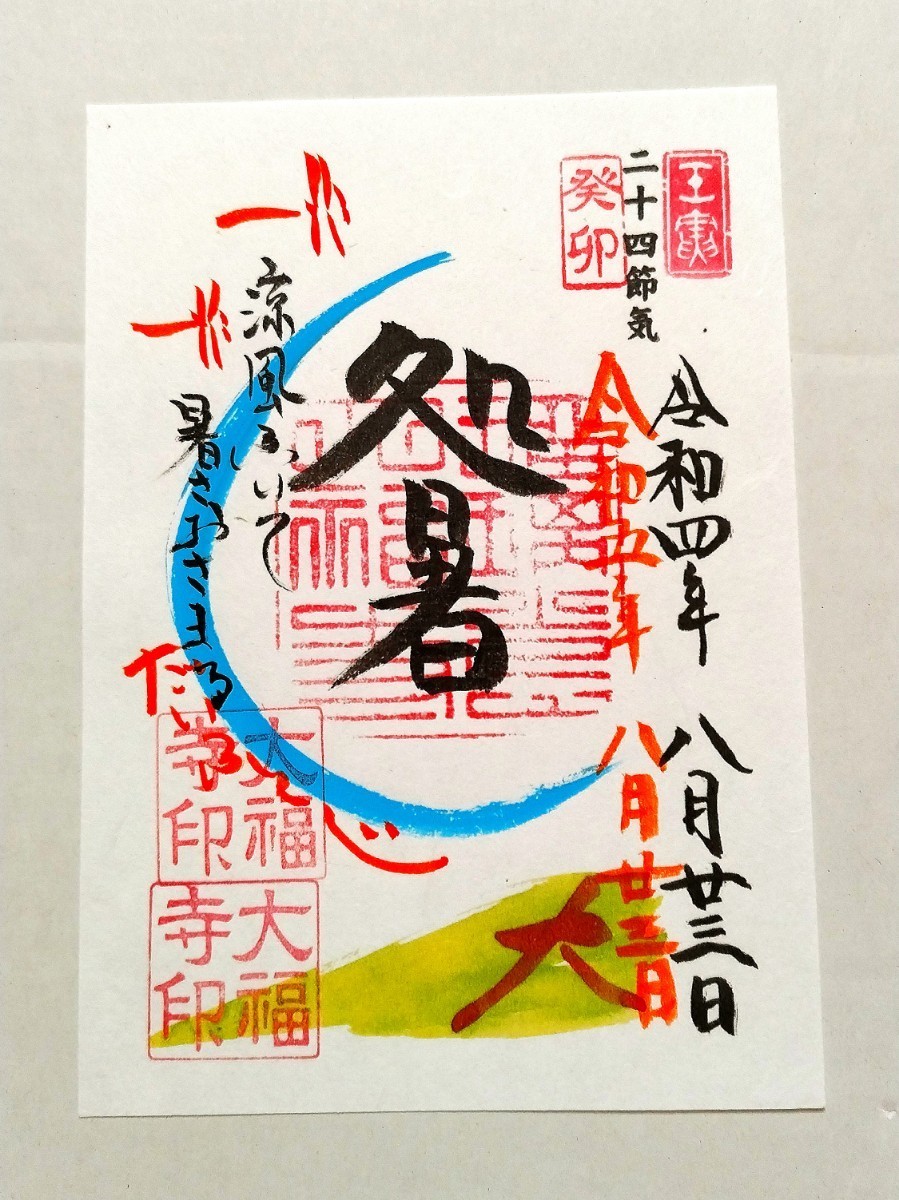 壬寅
二十四節気
癸卯
令和四年 八月廿三日
令和五年 八月廿三日
処暑
涼風ふいて
暑さおさまる
だいふくじ
大福寺印
大福寺印
大